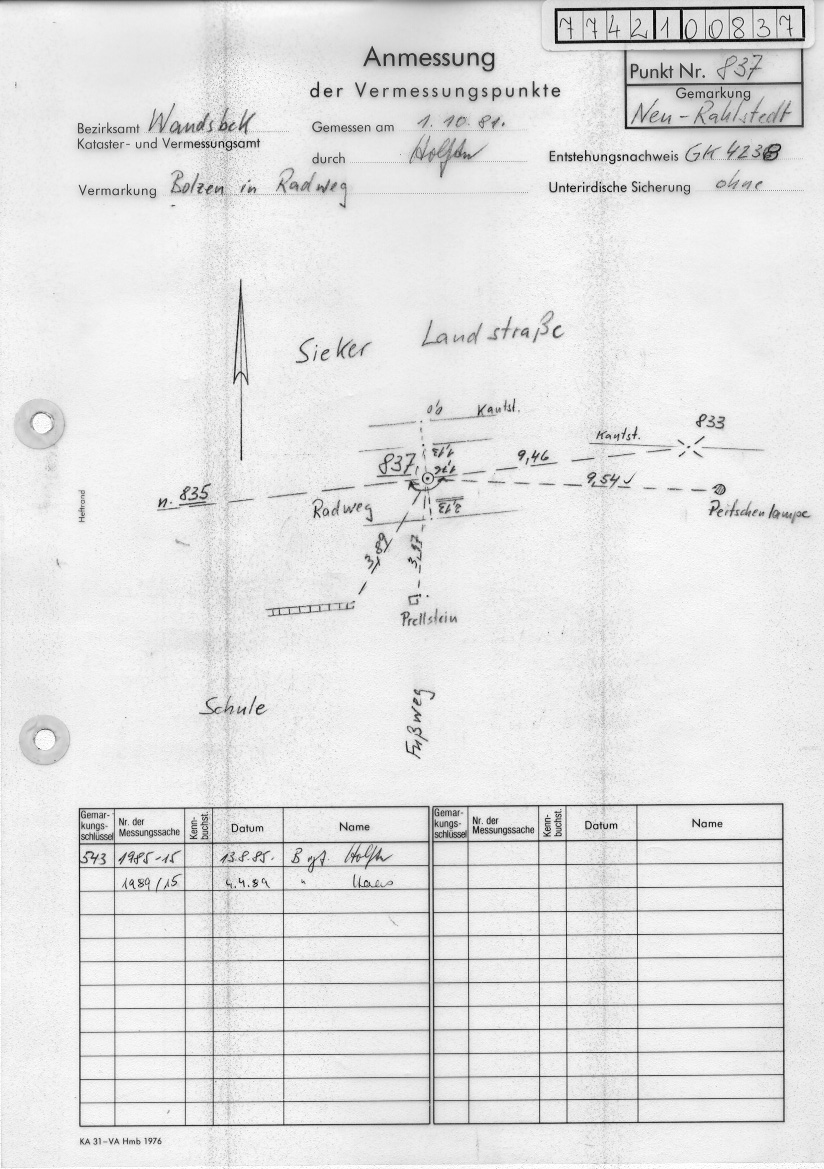 7742100837
Anmessung
der Vermessungspunkte
Punkt Nr. 837
Gemarkung
Neu-Rahlstedt
Bezirksamt Wandsbek
Kataster- und Vermessungsamt
Gemessen am 1.10.81.
durch
Entstehungsnachweis GK 4238
Vermarkung Bolzen in Radweg
Unterirdische Sicherung ohne
Sieker Landstraße
0,0 Kantst.
833
Kantst.
837
9,46
n. 835
9,54
Radweg
Peitschenlampe
Heftrand
3,89
3,97
Prellstein
Schule
Fußweg
Gemar-
kungs-
schlüssel
Nr. der
Messungssache
Kenn-
buchst.
Datum
Name
Gemar-
kungs-
schlüssel
Nr. der
Messungssache
Kenn-
buchst.
Datum
Name
543 1985-15 13.8.85.
1989/15 4.4.89 "
KA 31–VA Hmb 1976